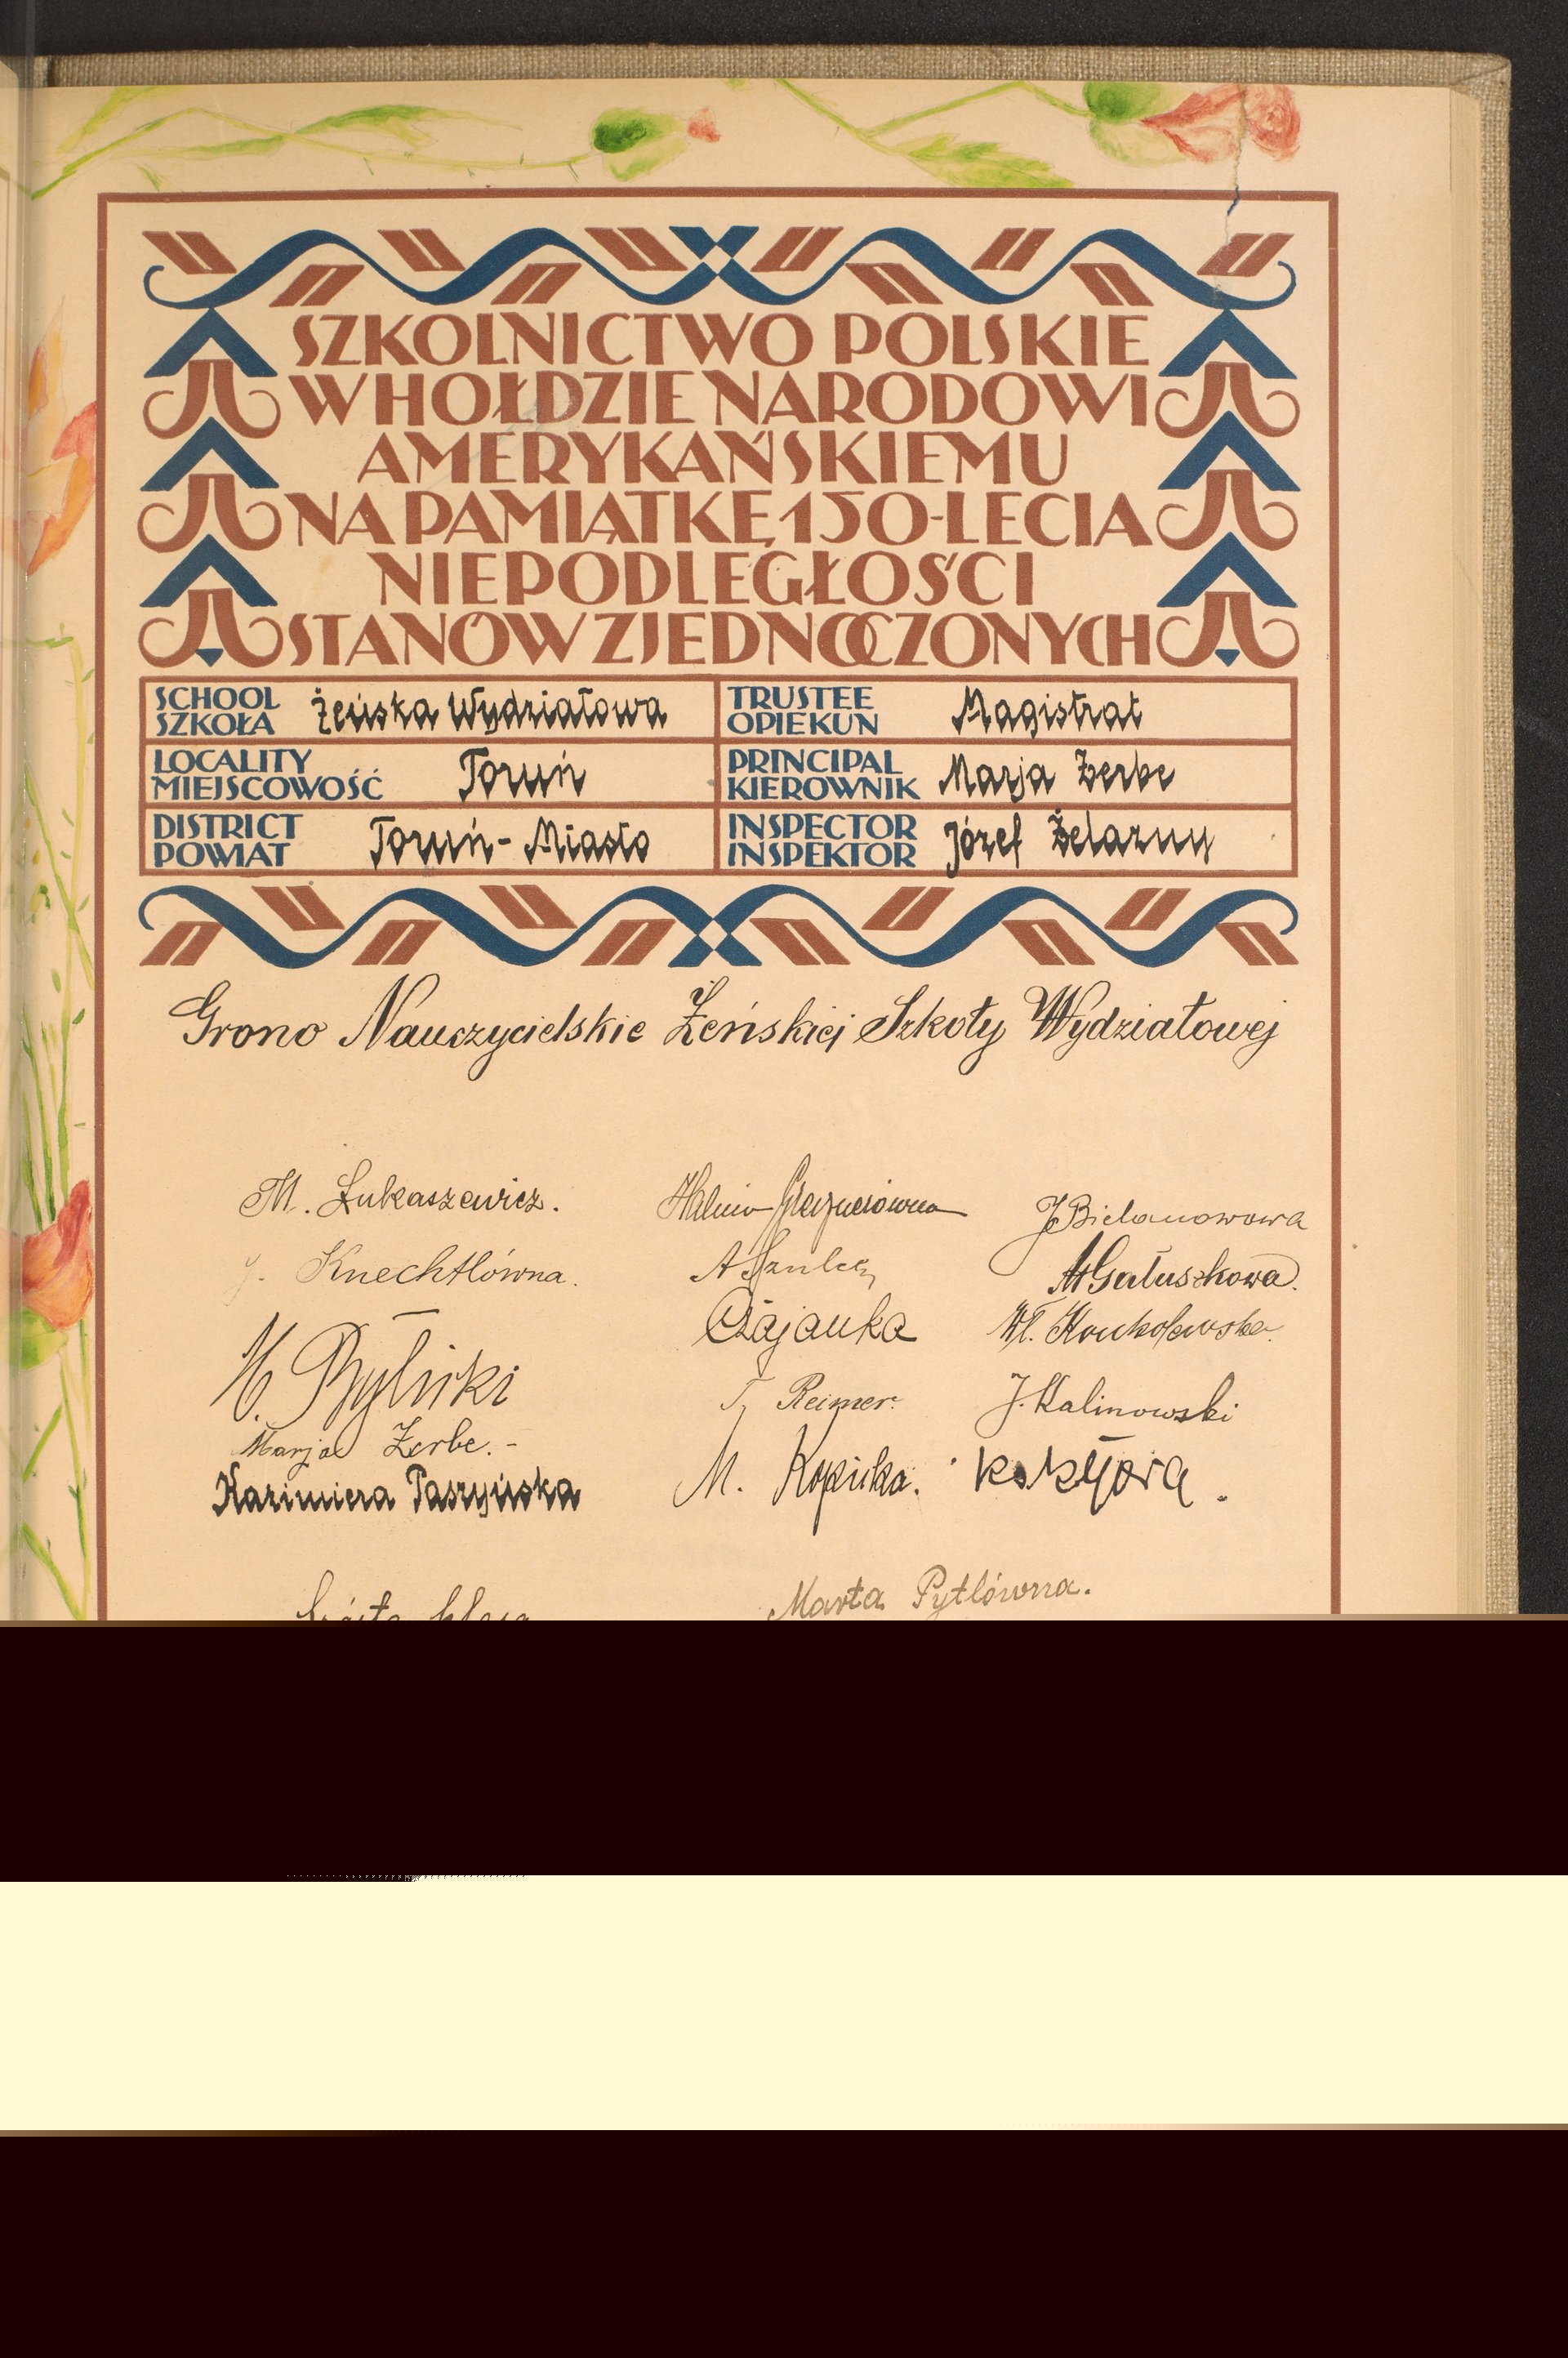 SZKOLNICTWO POLSKIE
W HOŁDZIE NARODOWI
AMERYKAŃSKIEMU
NA PAMIĄTKĘ 150-LECIA
NIEPODLEGŁOŚCI
STANÓW ZJEDNOCZONYCH
SCHOOL
SZKOŁA Żeńska Wydziałowa
TRUSTEE
OPIEKUN Magistrat
LOCALITY
MIEJSCOWOŚĆ Toruń
PRINCIPAL
KIEROWNIK Marja Żerbe
DISTRICT
POWIAT Toruń-Miasto
INSPECTOR
INSPEKTOR Józef Żelazny
Grono Nauczycielskie Żeńskiej Szkoły Wydziałowej
M. Łukaszewicz.
Halina
J. Bielanowowa
J. Knechtlówna.
A Szulcz
M Gałuszkowa.
Czajanka
Wł.
T. Reimer.
J. Kalinowski
Marja Żerbe.-
M.
Kazimiera Paszyńska
Marta Pytlówna.